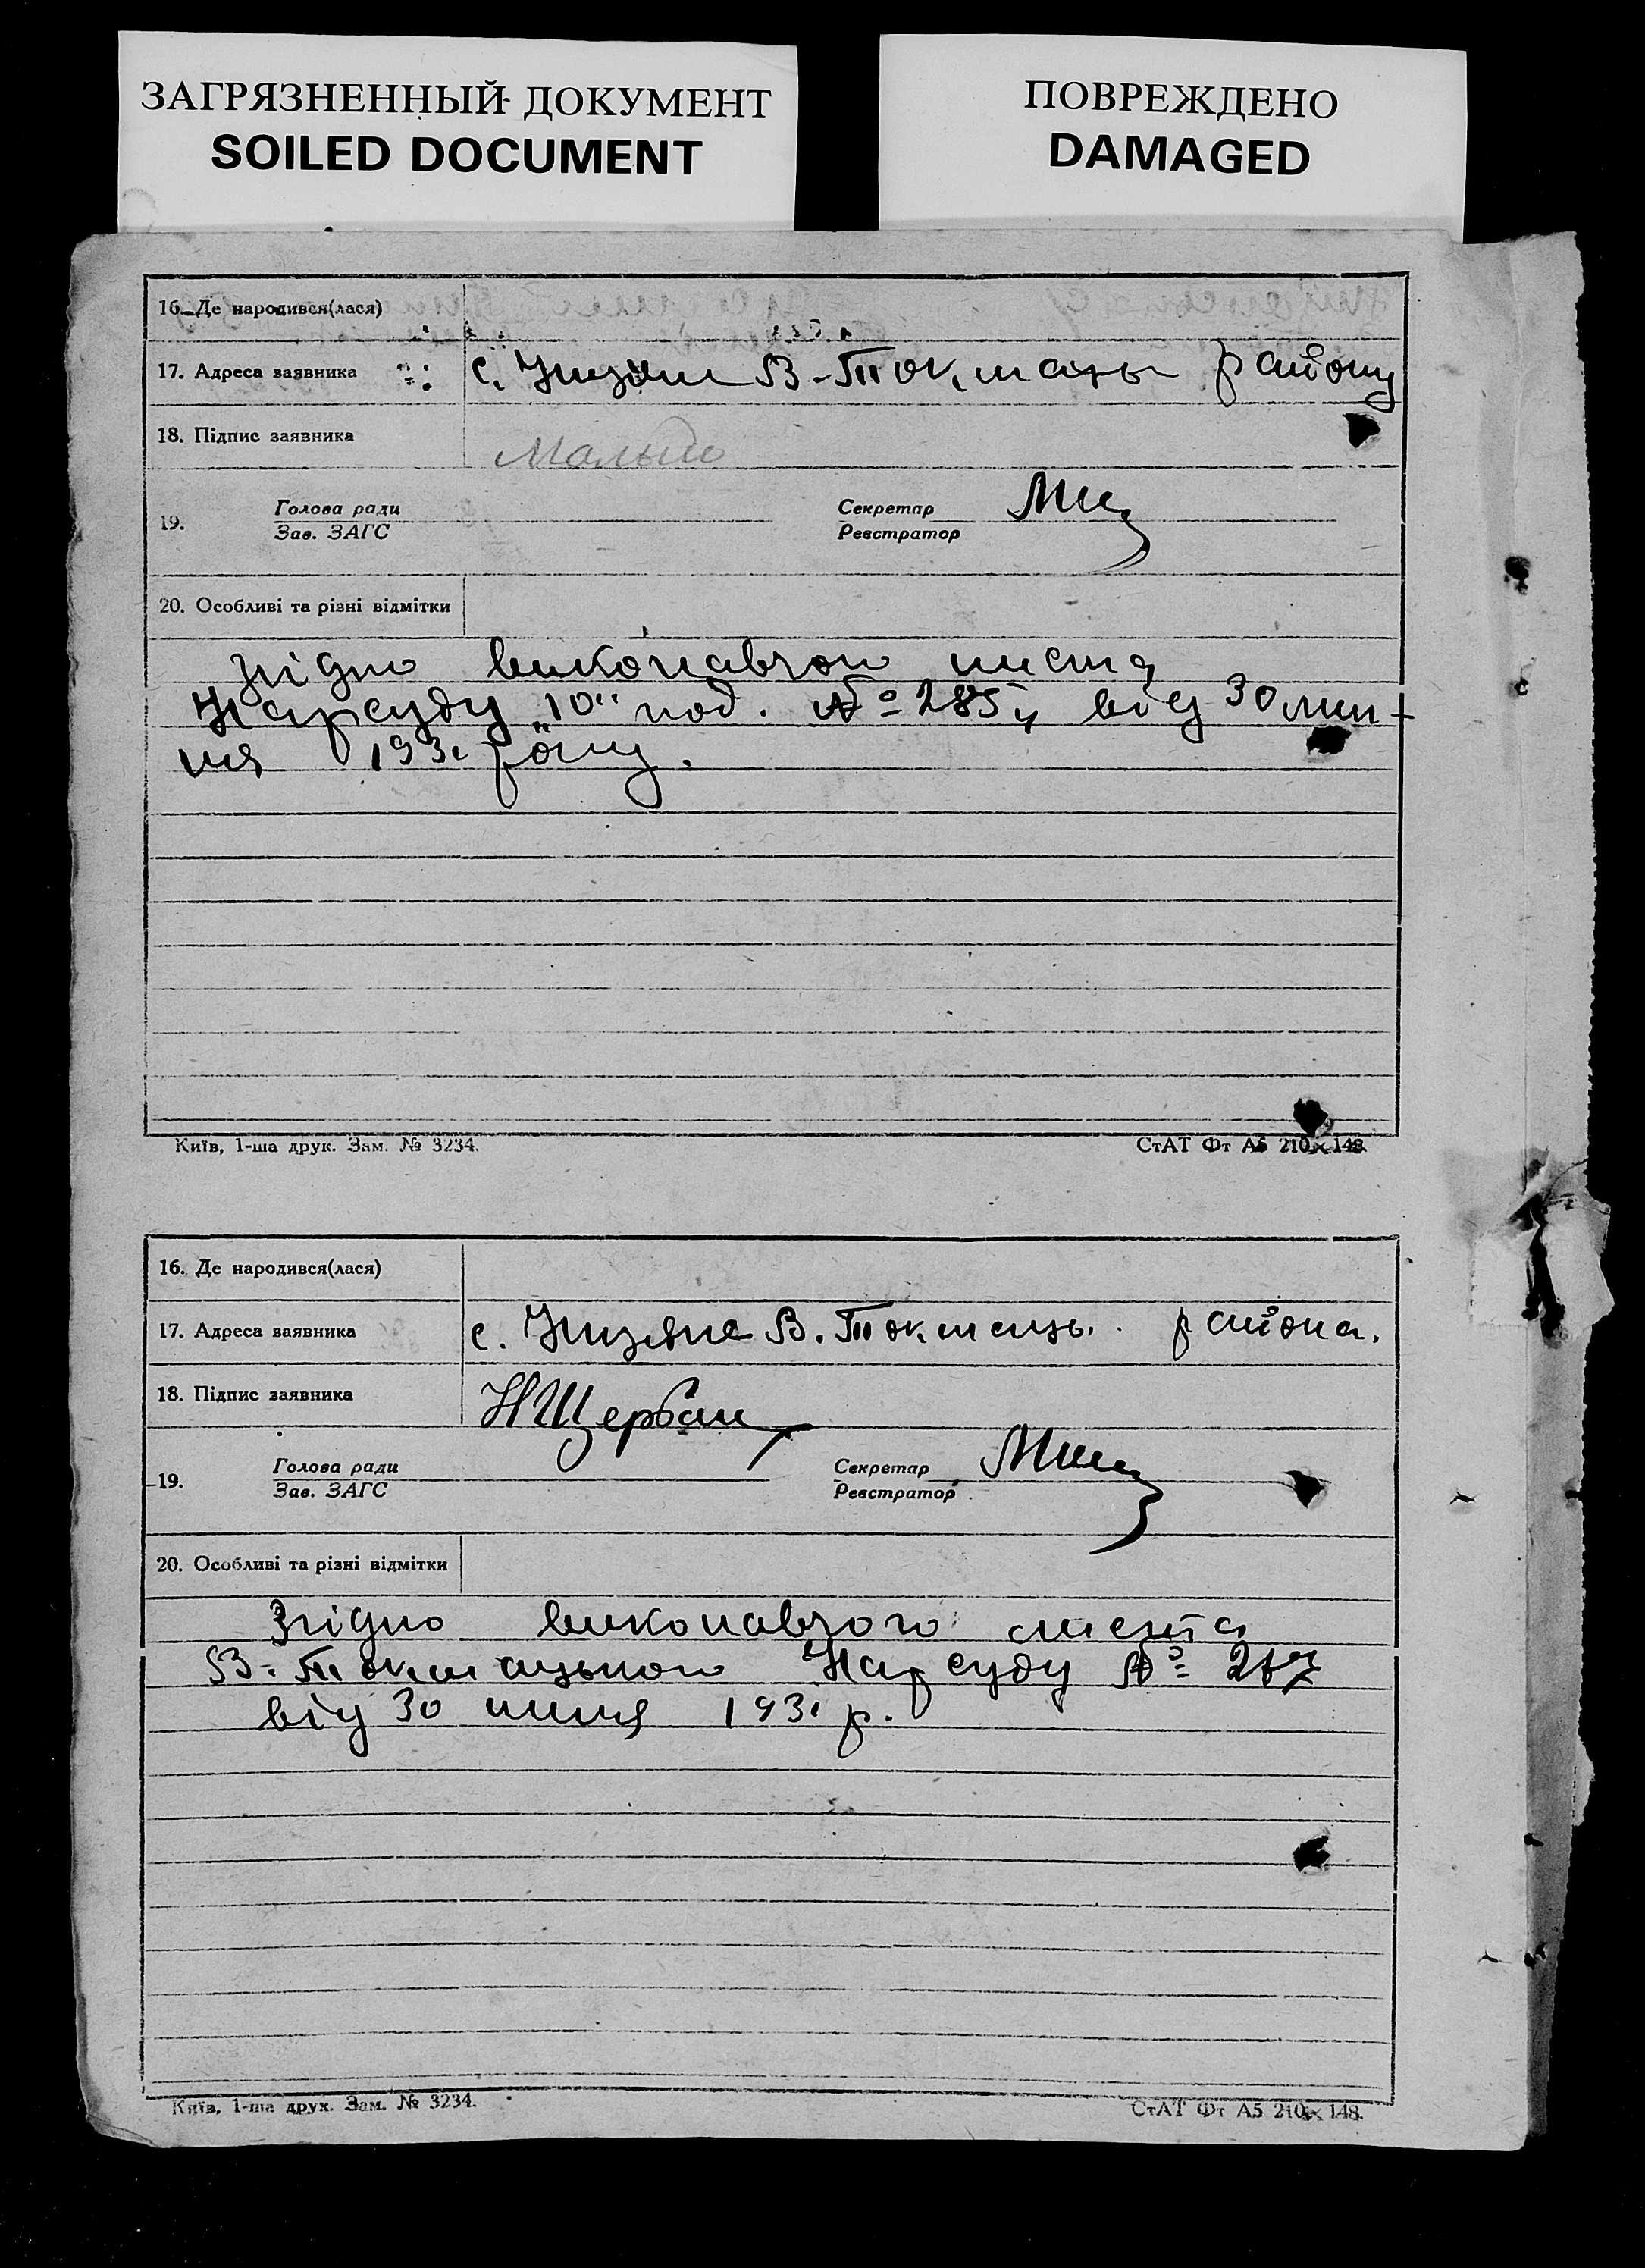 ЗАГРЯЗНЕННЫЙ ДОКУМЕНТ
SOILED DOCUMENT
ПОВРЕЖДЕНО
DAMAGED
16. Де народився(лася)
17. Адреса заявника с. В-Токмаць району
18. Підпис заявника
19. Голова ради
Зав. ЗАГС
Секретар
Реєстратор
20. Особливі та різні відмітки
Згідно виконавчого листа
Нарсуду „10“ под. № 285 від 30 лип-
ня 1931 року.
Київ, 1-ша друк. Зам. № 3234.
СтАТ Фт А5 210×148.
16. Де народився(лася)
17. Адреса заявника с. В. Токмаць. района.
18. Підпис заявника НЩербан
19. Голова ради
Зав. ЗАГС
Секретар
Реєстратор
20. Особливі та різні відмітки
Згідно виконавчого листа
В-Токмацького Нарсуду №
від 30 липня 1931 р.
Київ, 1-ша друк. Зам. № 3234.
СтАТ Фт А5 210×148.